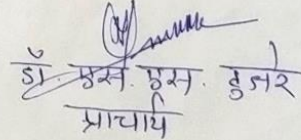 डॉ. एस. एस. दुजारे
प्राचार्य